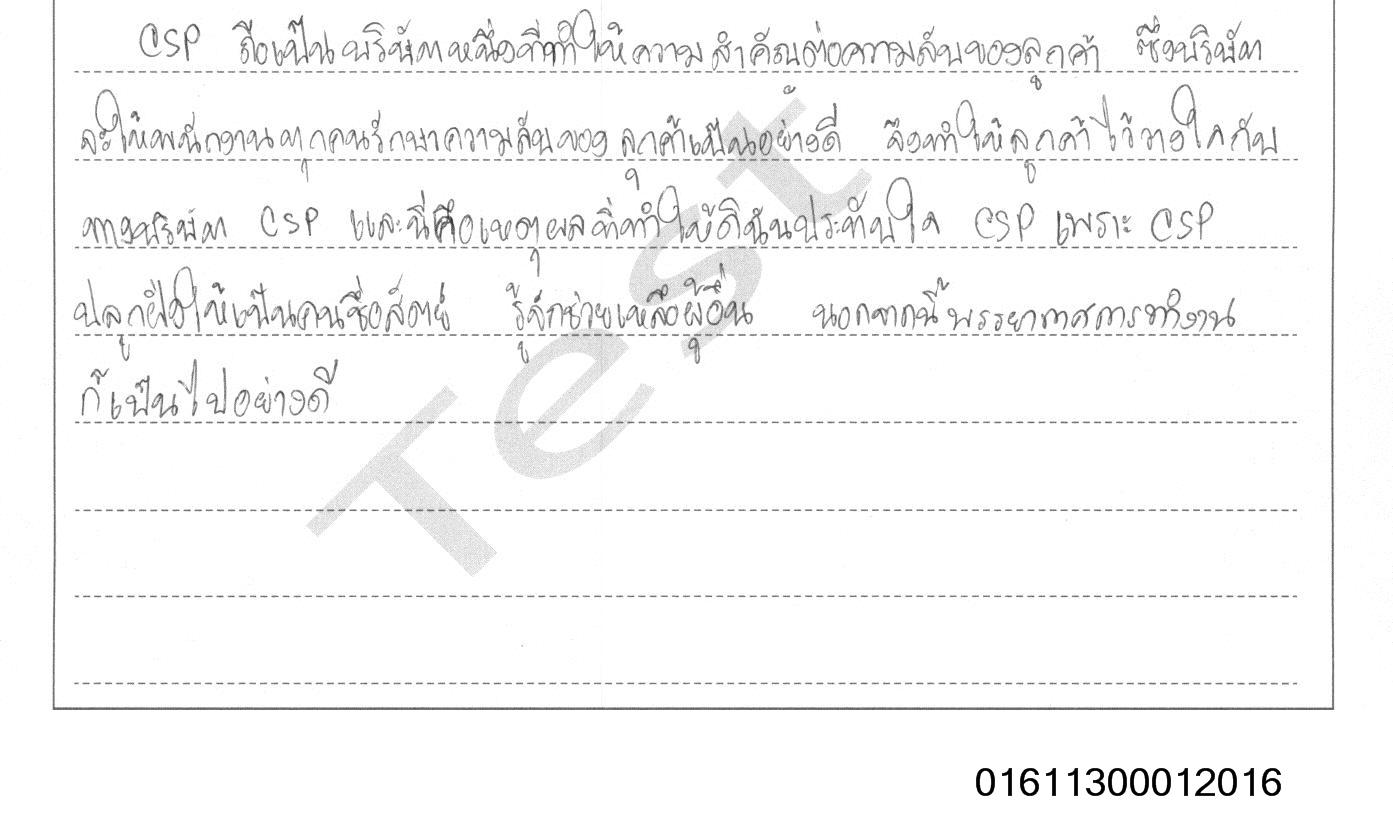 CSP ถือเป็นบริษัทหนึ่งที่ทำให้ความสำคัญต่อความลับของลูกค้า ซึ่งบริษัท
จะให้พนักงานทุกคนรักษาความลับของลูกค้าเป็นอย่างดี จึงทำให้ลูกค้าไว้วางใจกับ
ทางบริษัท CSP และนี่คือเหตุผลที่ทำให้ดิฉันประทับใจ CSP เพราะ CSP
ปลูกฝังให้เป็นคนซื่อสัตย์ รู้จักช่วยเหลือผู้อื่น นอกจากนี้บรรยากาศการทำงาน
ก็เป็นไปอย่างดี
Test
01611300012016